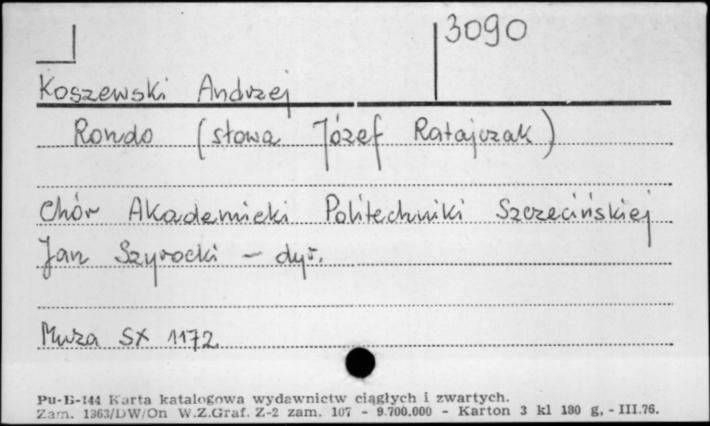 3090
Koszewski Andrzej
Rondo (słowa Józef Ratajczak)
Chór Akademicki Politechniki Szczecińskiej
Jan Szyrocki - dyr.
Muza SX 1172
Pu-B-144 Karta katalogowa wydawnictw ciągłych i zwartych.
Zam. 1363/DW/On W.Z.Graf. Z-2 zam. 107 - 9.700.000 - Karton 3 kl 180 g, - III.76.